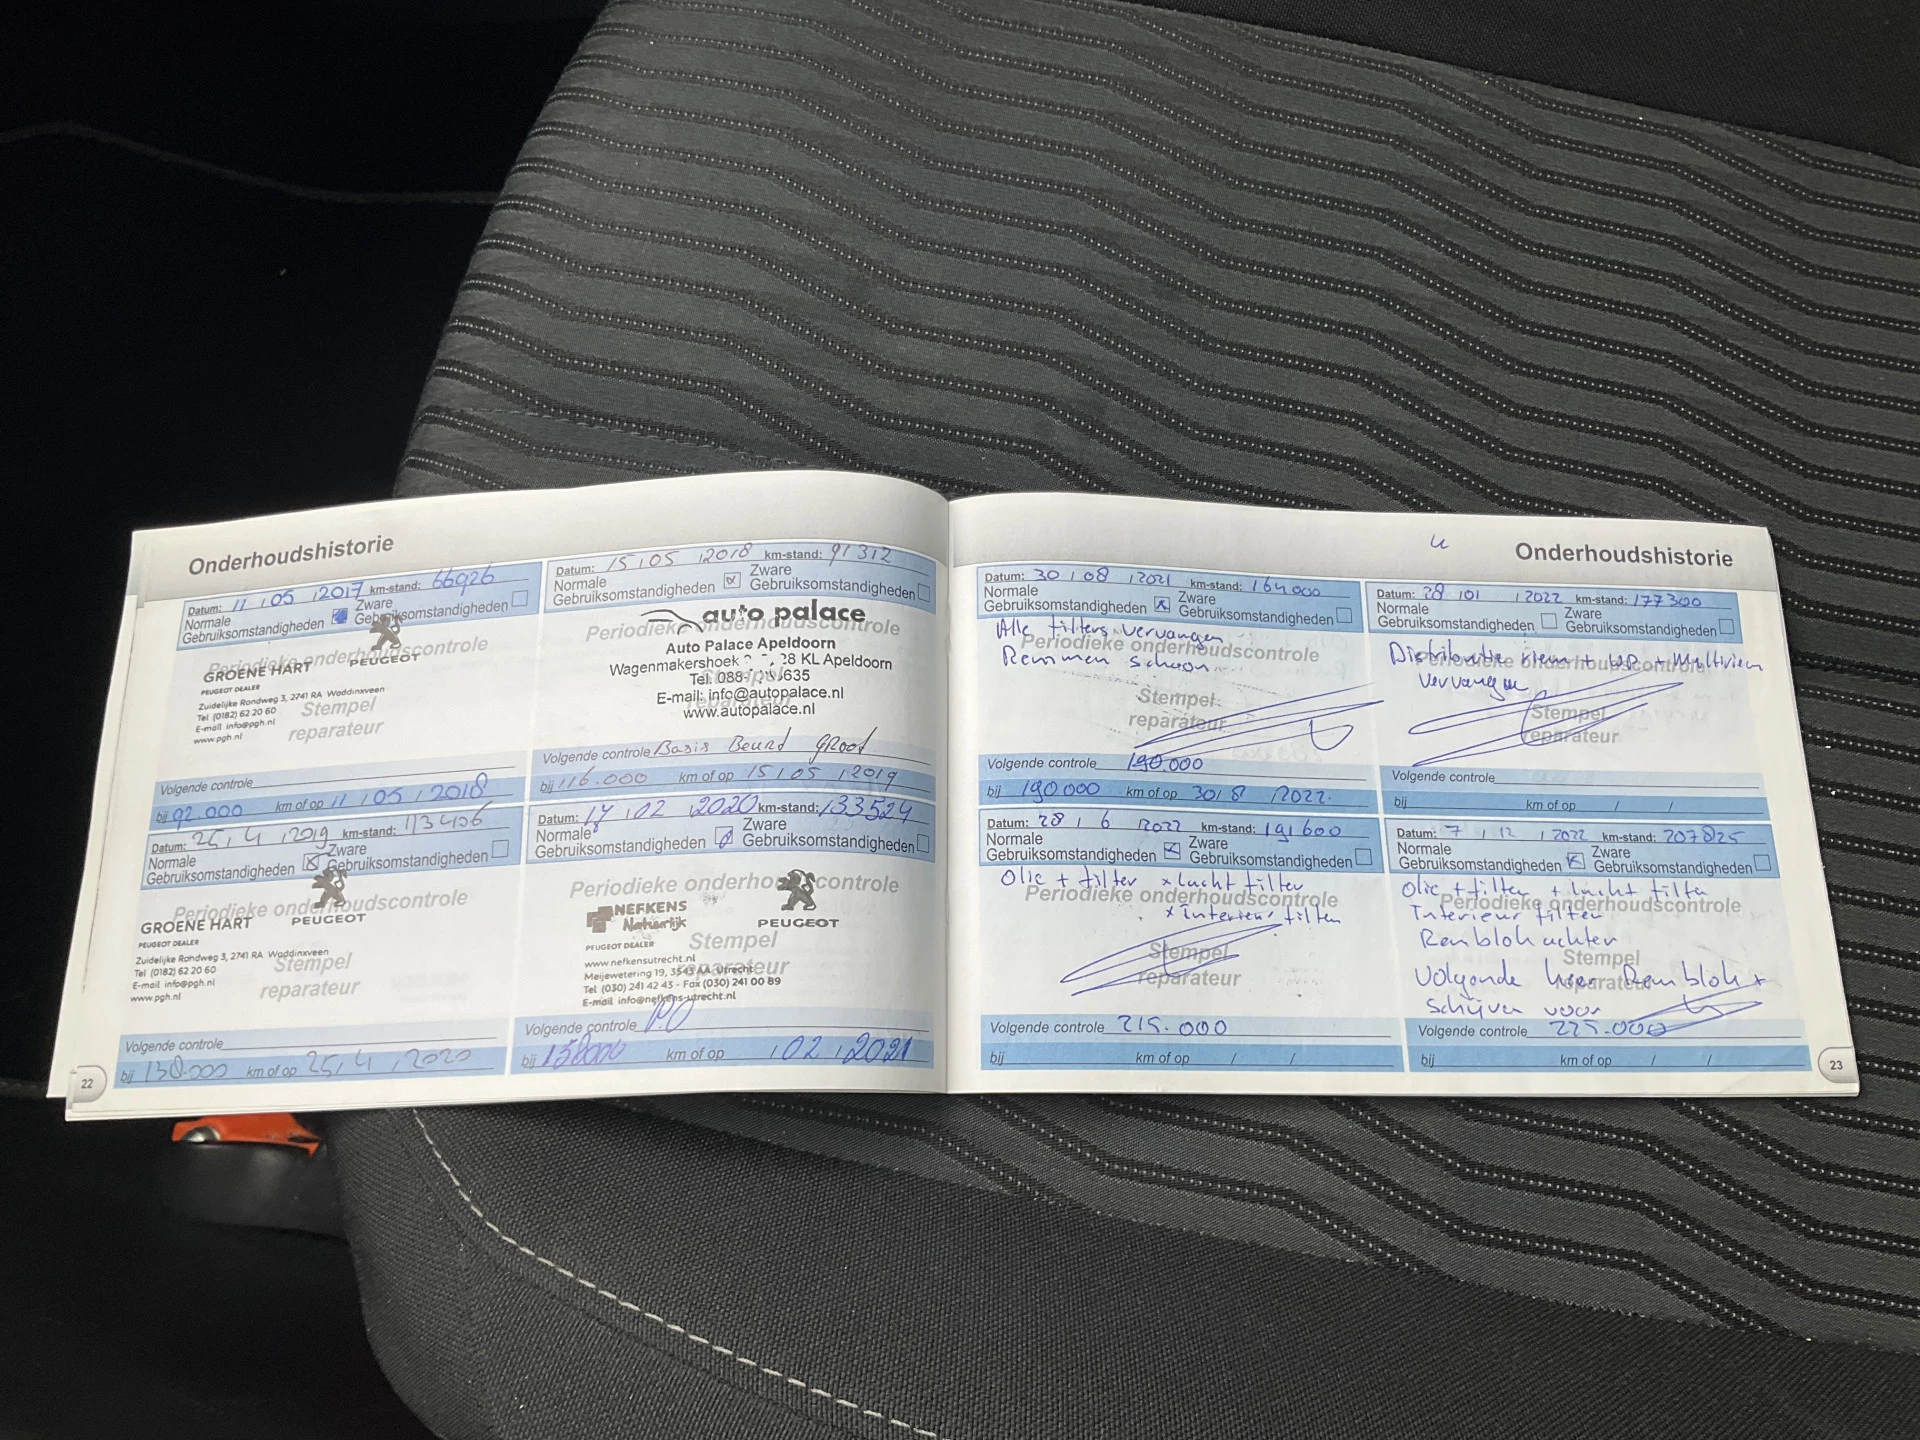 Onderhoudshistorie
Datum: 11 / 05 / 2017 km-stand: 66926
Normale Gebruiksomstandigheden
Zware Gebruiksomstandigheden
Periodieke onderhoudscontrole
GROENE HART PEUGEOT
PEUGEOT DEALER
Zuidelijke Rondweg 3, 2741 RA Waddinxveen
Tel (0182) 62 20 60
E-mail info@pgh.nl
www.pgh.nl
Stempel
reparateur
Volgende controle
bij 92.000 km of op 11 / 05 / 2018
Datum: 15 / 05 / 2018 km-stand: 91312
Normale Gebruiksomstandigheden
Zware Gebruiksomstandigheden
auto palace
Periodieke onderhoudscontrole
Auto Palace Apeldoorn
Wagenmakershoek 28 KL Apeldoorn
Tel: 088- 635
E-mail: info@autopalace.nl
www.autopalace.nl
Volgende controle Basis Beurt groot
bij 116.000 km of op 15 / 05 / 2019
Datum: 25 / 4 / 2019 km-stand: 113456
Normale Gebruiksomstandigheden
Zware Gebruiksomstandigheden
Periodieke onderhoudscontrole
GROENE HART PEUGEOT
PEUGEOT DEALER
Zuidelijke Rondweg 3, 2741 RA Waddinxveen
Tel (0182) 62 20 60
E-mail info@pgh.nl
www.pgh.nl
Stempel
reparateur
Volgende controle
bij 138.000 km of op 25 / 4 / 2020
Datum: 17 / 02 / 2020 km-stand: 133524
Normale Gebruiksomstandigheden
Zware Gebruiksomstandigheden
Periodieke onderhoudscontrole
NEFKENS
Natuurlijk
PEUGEOT
PEUGEOT DEALER
Stempel
reparateur
www.nefkensutrecht.nl
Meijewetering 19, 3543 AA Utrecht
Tel (030) 241 42 43 - Fax (030) 241 00 89
E-mail info@nefkens-utrecht.nl
Volgende controle
bij 158000 km of op / 02 / 2021
22
Onderhoudshistorie
Datum: 30 / 08 / 2021 km-stand: 164000
Normale Gebruiksomstandigheden
Zware Gebruiksomstandigheden
Alle filters vervangen
Periodieke onderhoudscontrole
Remmen schoon
Stempel
reparateur
Volgende controle 190.000
bij 190.000 km of op 30 / 8 / 2022.
Datum: 28 / 01 / 2022 km-stand: 177300
Normale Gebruiksomstandigheden
Zware Gebruiksomstandigheden
Distributie riem + WP + Multiriem
Periodieke onderhoudscontrole
vervangen
Stempel
reparateur
Volgende controle
bij km of op / /
Datum: 28 / 6 / 2022 km-stand: 191600
Normale Gebruiksomstandigheden
Zware Gebruiksomstandigheden
Olie + filter + lucht filter
Periodieke onderhoudscontrole
+ Interieur filter
Stempel
reparateur
Volgende controle 215.000
bij km of op / /
Datum: 7 / 12 / 2022 km-stand: 207825
Normale Gebruiksomstandigheden
Zware Gebruiksomstandigheden
Olie + filter + lucht filter
Periodieke onderhoudscontrole
Interieur filter
Remblok achter
Stempel
reparateur
Volgende keer Remblok +
schijven voor
Volgende controle 225.000
bij km of op / /
23